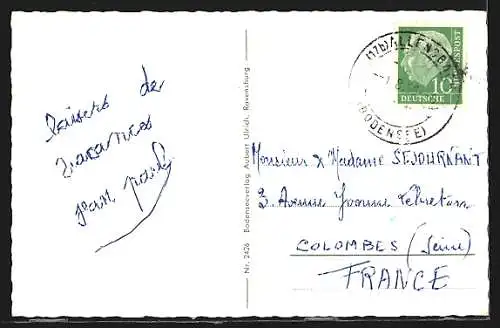 Baisers de
vacances
Jean
Nr. 2426 Bodenseeverlag Aubert Ulrich, Ravensburg
(17b) ALLENSBACH
(BODENSEE)
BUNDESPOST
10
DEUTSCHE
Monsieur & Madame SEJOURNANT
3. Avenue Yvonne
COLOMBES (Seine)
FRANCE